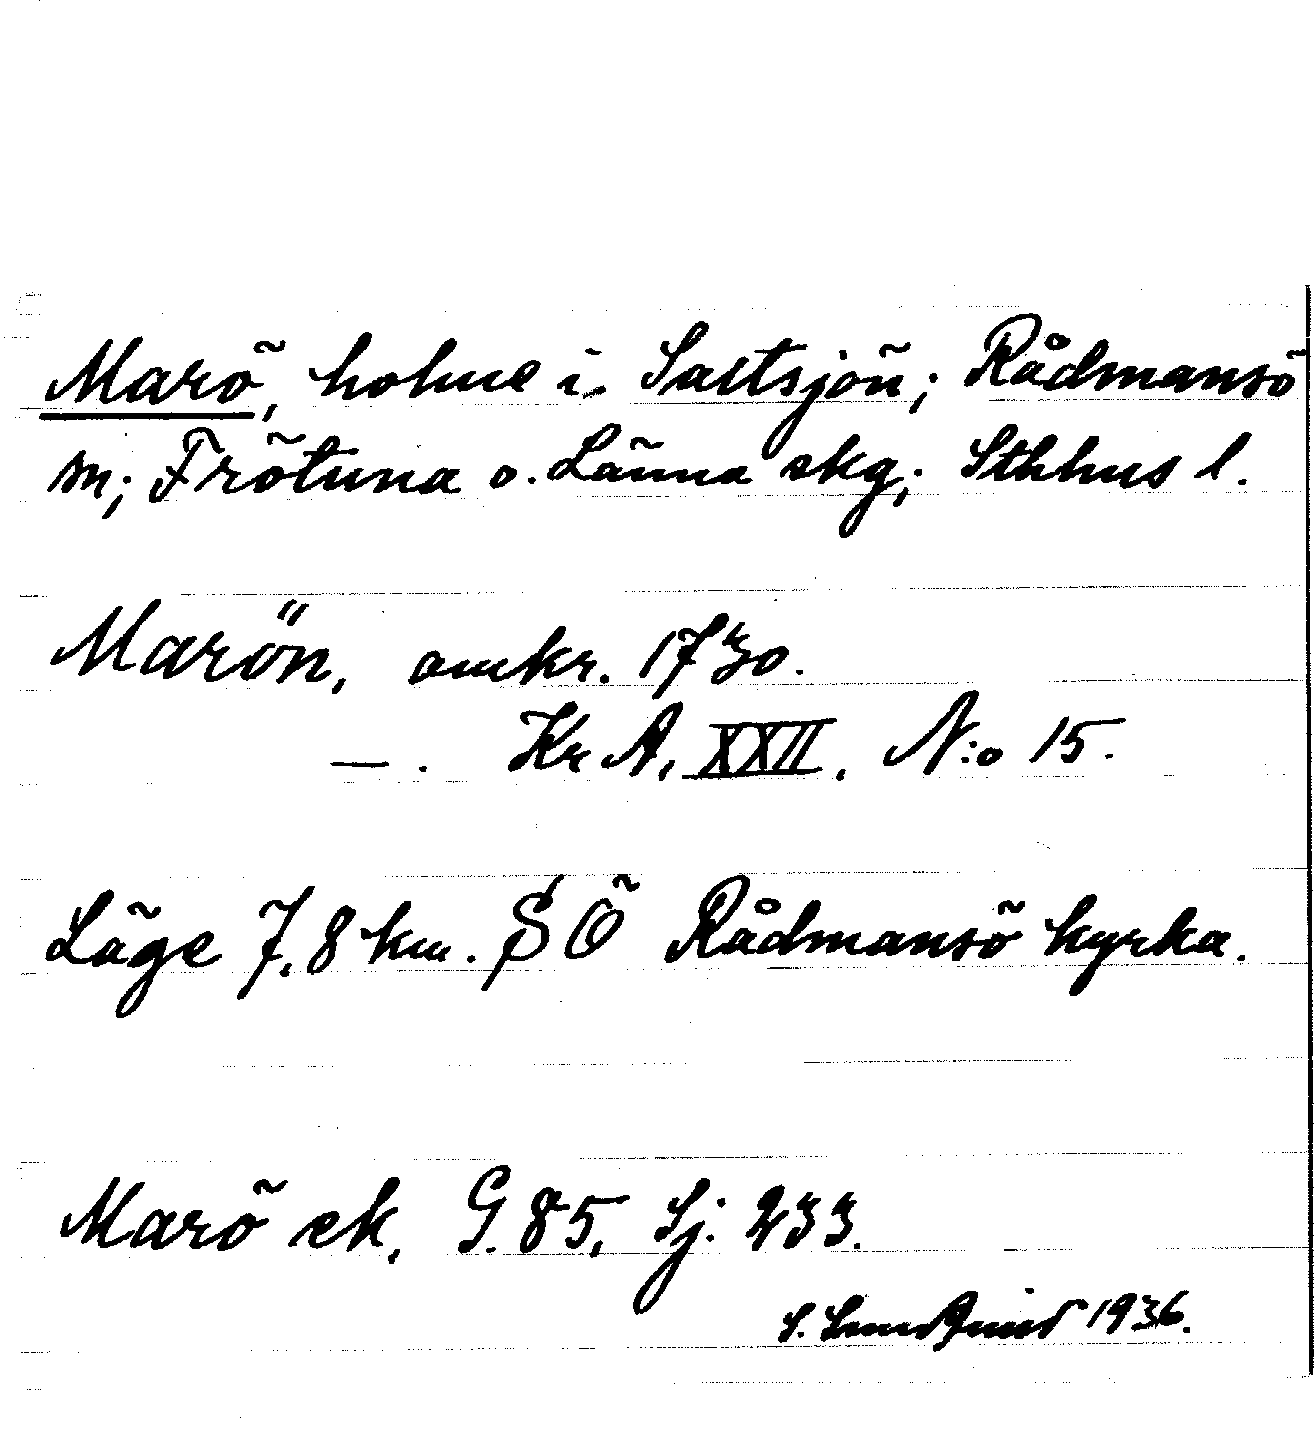 Marö, holme i Saltsjön; Rådmansö
sn; Frötuna o. Länna skg; Sthlms l.
Marön, omkr. 1730.
—. Kr A, XXII. N:o 15.
Läge 7,8 km. SÖ Rådmansö kyrka.
Marö ek, G. 85, Sj. 233.
1936.